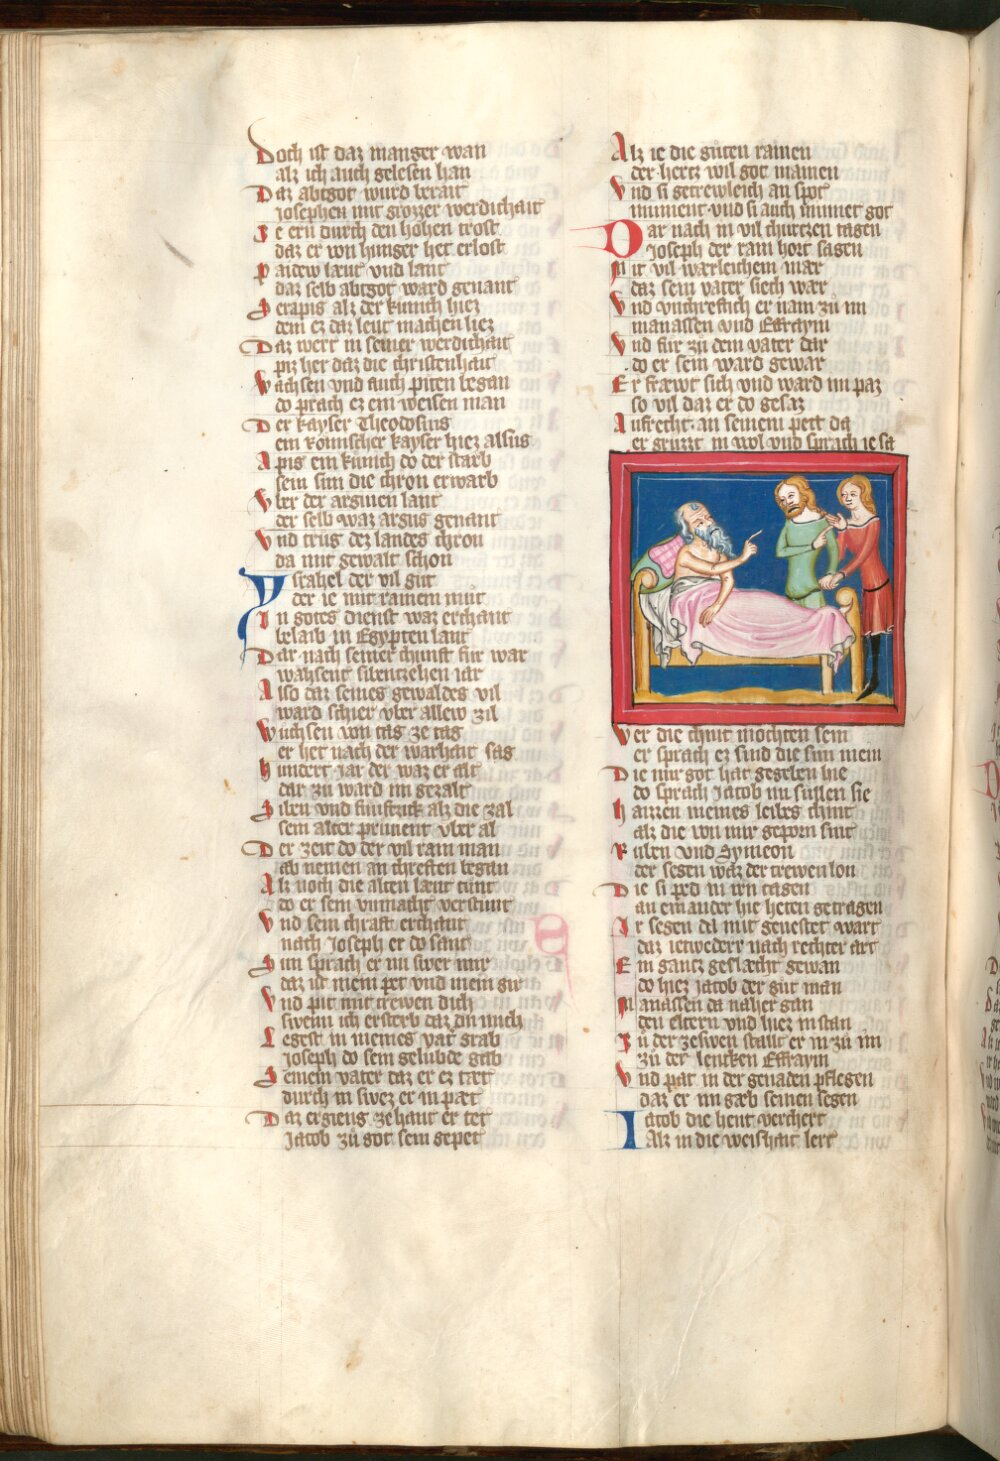 Doch ist daz manger wan
alz ich auch gelesen han
Daz abtgot wurd berait
Josephen mit grozzer werdichait
Je ern durch den hohen trost
daz er von hunger het erlost
Paidew laut vnd lant
daz selb abtgot ward genant
Serapis alz der kunich hiez
dem ez daz leut machen liez
Daz wert in seiner werdichait
piz her daz die christenhait
Wachsen vnd auch piten began
do prach ez ein weisen man
Der kayser Theodosius
ein romischer kayser hiez alsus
Apis ein kunich do der starb
sein sun die chron erwarb
Vber der arginen lant
der selb waz argus genant
Vnd trug dez landes chron
da mit gewalt schon
Ysrahel der vil gut
der ie mit rainem mut
In gotes dienst waz erchant
belaib in Egypten lant
Dar nach seiner chunft fur war
wahsent sibentzehen iar
Also daz seines gewaldes vil
ward schier vber allew zil
Wuchsen von tag ze tag
er het nach der warhait sag
hundert jar der waz er alt
dar zu ward im gezalt
Siben vnd funftzick alz die zal
sein alter pruuent vber al
Der zeit do der vil rain man
ab nemen an chreften began
Alz noch die alten laeut tunt
do er sein vnmacht verstunt
Vnd sein chraft erchant
nach Joseph er do sant
Sun sprach er nu swer mir
daz ist mein pet vnd mein gir
Vnd pit mit trewen dich
swenn ich ersterb daz du mich
Legest in meines vat grab
Joseph do sein gelubde gab
Seinem vater daz er ez taet
durch in swez er in paet
Daz ergieng zehant er tet
Jacob zu got sein gepet
Alz ie die guten rainen
der hertz wil got mainen
Vnd si getrewleich an spot
minnent vnd si auch immer got
Dar nach in vil churtzen tagen
Joseph der rain hort sagen
Mit vil waerleichem maer
daz sein vater siech waer
Vnd vnchreftich er nam zu im
manassen vnd Effraym
Vnd fur zu dem vater dar
do er sein ward gewar
Er fraewt sich vnd ward im paz
so vil daz er do gesaz
Aufrecht an seinem pett da
er gruzzt in wol vnd sprach ie sa
Wer die chint mochten sein
er sprach ez sind die sun mein
Die mir got hat gegeben hie
do sprach Jacob nu sullen sie
haizzen meines leibes chint
alz die von mir geporn sint
Ruben vnd Symeon
der segen waz der trewen lon
Die si paed in irn tagen
an einander hie heten getragen
Ir segen da mit geuestet wart
daz ietwederr nach rechter art
Ein gantz geslaecht gewan
do hiez Jacob der gut man
Manassen da naher gan
den eltern vnd hiez in stan
Zu der zeswen stallt er in zu im
zu der lencken Effraym
Vnd pat in der genaden pflegen
daz er im gaeb seinen segen
Iacob die hent verchert
Alz in die weishait lert